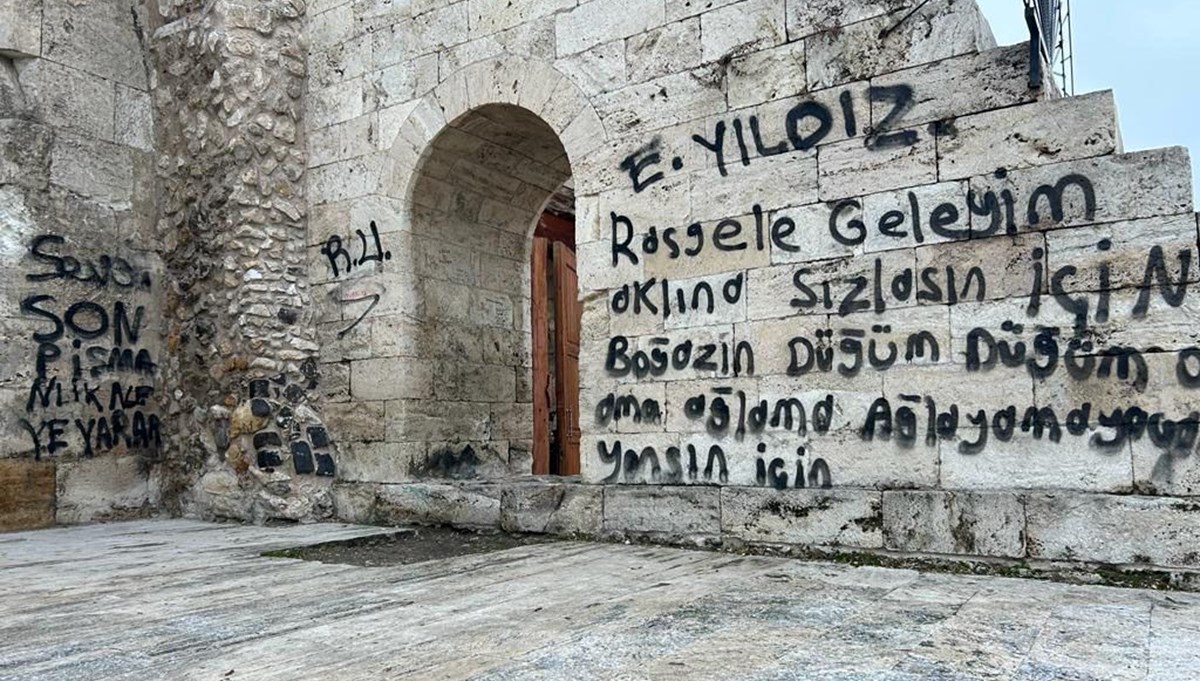 SON
PiSMA
NLIK NE
YE YARAR
R.U.
E. YILDIZ
Rasgele Geleyim
aklına Sızlasın içiN
Boğazın Düğüm Düğüm
ama ağlama Ağlayamayaca
Yansın için